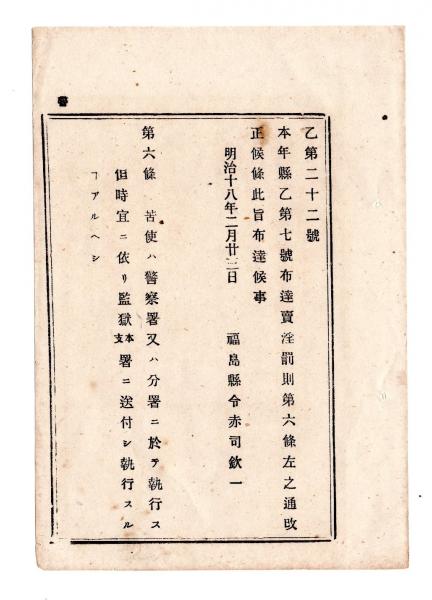 乙第二十二號
本年縣乙第七號布達賣淫罰則第六條左之通改
正候條此旨布達候事
明治十八年二月廿三日
福島縣令赤司欽一
第六條 苦使ハ警察署又ハ分署ニ於テ執行ス
但時宜ニ依リ監獄本支署ニ送付シ執行スル
ヿアルヘシ
警